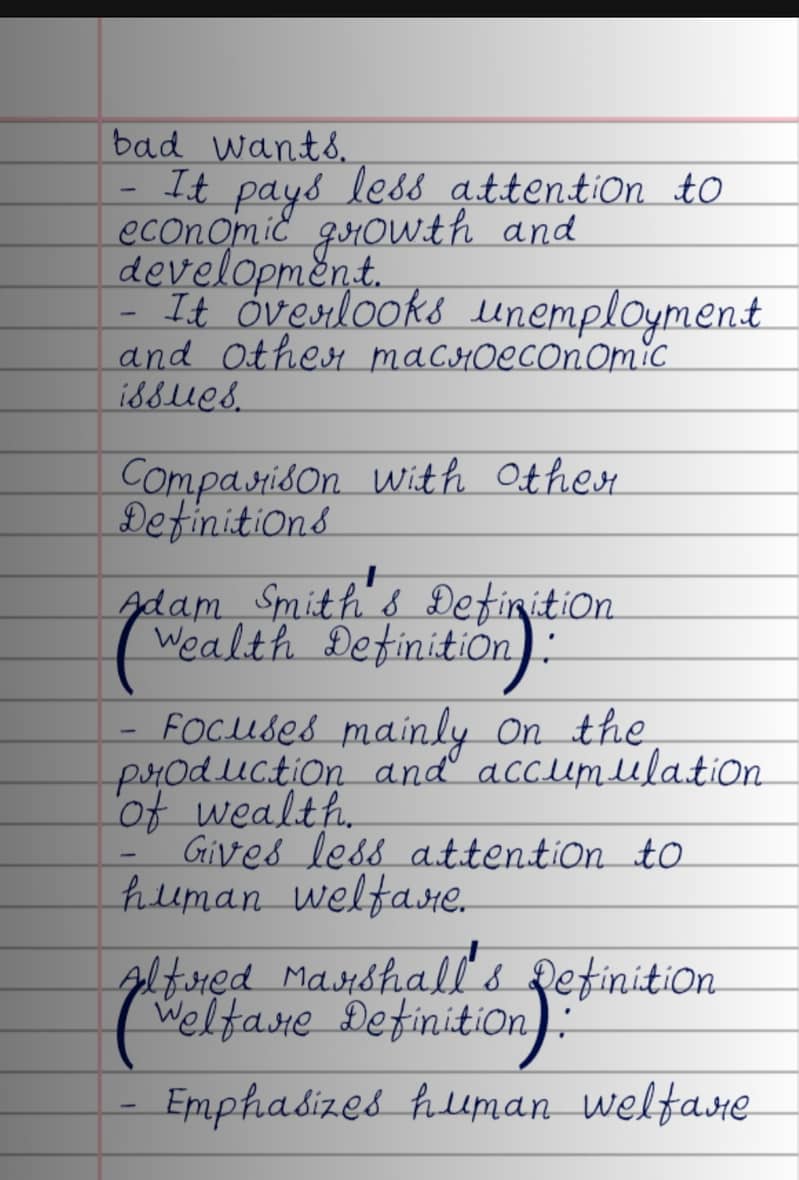 bad wants.
- It pays less attention to
economic growth and
development.
- It overlooks unemployment
and other macroeconomic
issues.
Comparison with Other
Definitions
Adam Smith's Definition
(Wealth Definition):
- Focuses mainly on the
production and accumulation
of wealth.
- Gives less attention to
human welfare.
Alfred Marshall's Definition
(Welfare Definition):
- Emphasizes human welfare